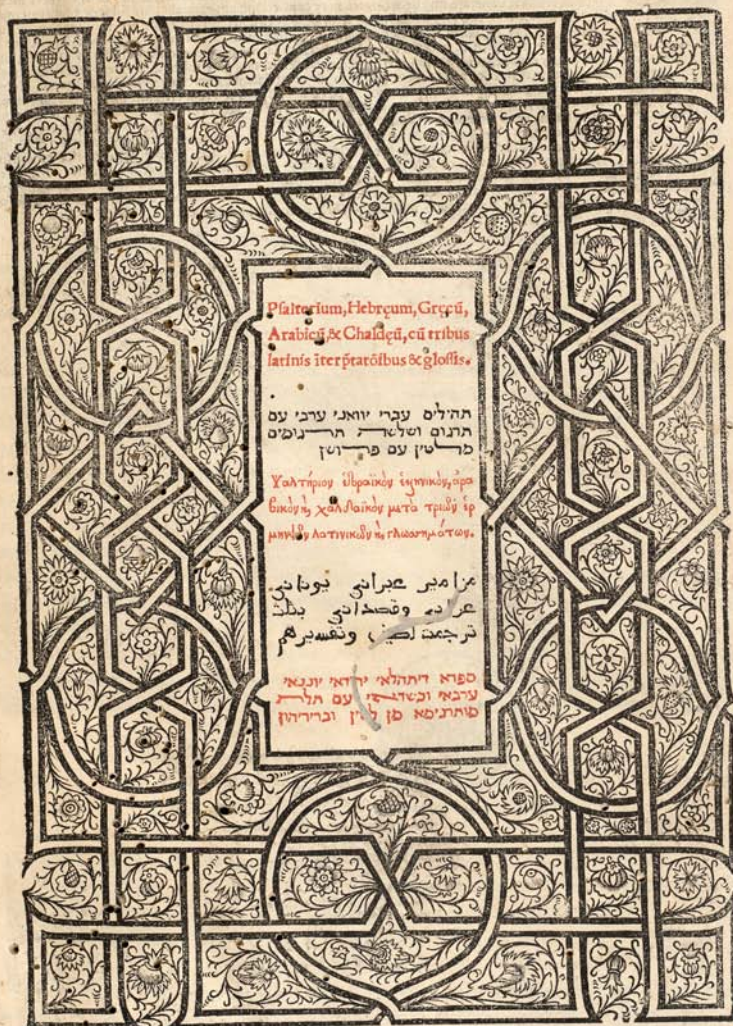 Psalterium, Hebręum, Gręcū,
Arabicū, & Chaldęū, cū tribus
latinis īterp̄tatōibus & glossis.
תהילים עברי יוואני ערבי עם
תרגום ושלשה תרגומים
מלטין עם פרושן
Ψαλτήριον ἑβραϊκὸν ἑλληνικὸν, ἀρα
βικὸν ϗ, χαλδαϊκὸν μετὰ τριῶν ἑρ
μηνειῶν λατινικῶν ϗ, γλωσσημάτων.
مزامير عبراني يوناني
عرابي وقصداني بثلث
ترجمت لطيني وتفسيرهم
ספרא דיתהלאי יהדאי יוונאי
ערבאי וכשדאי עם תלת
מותרגימא מן לטין וביריהון